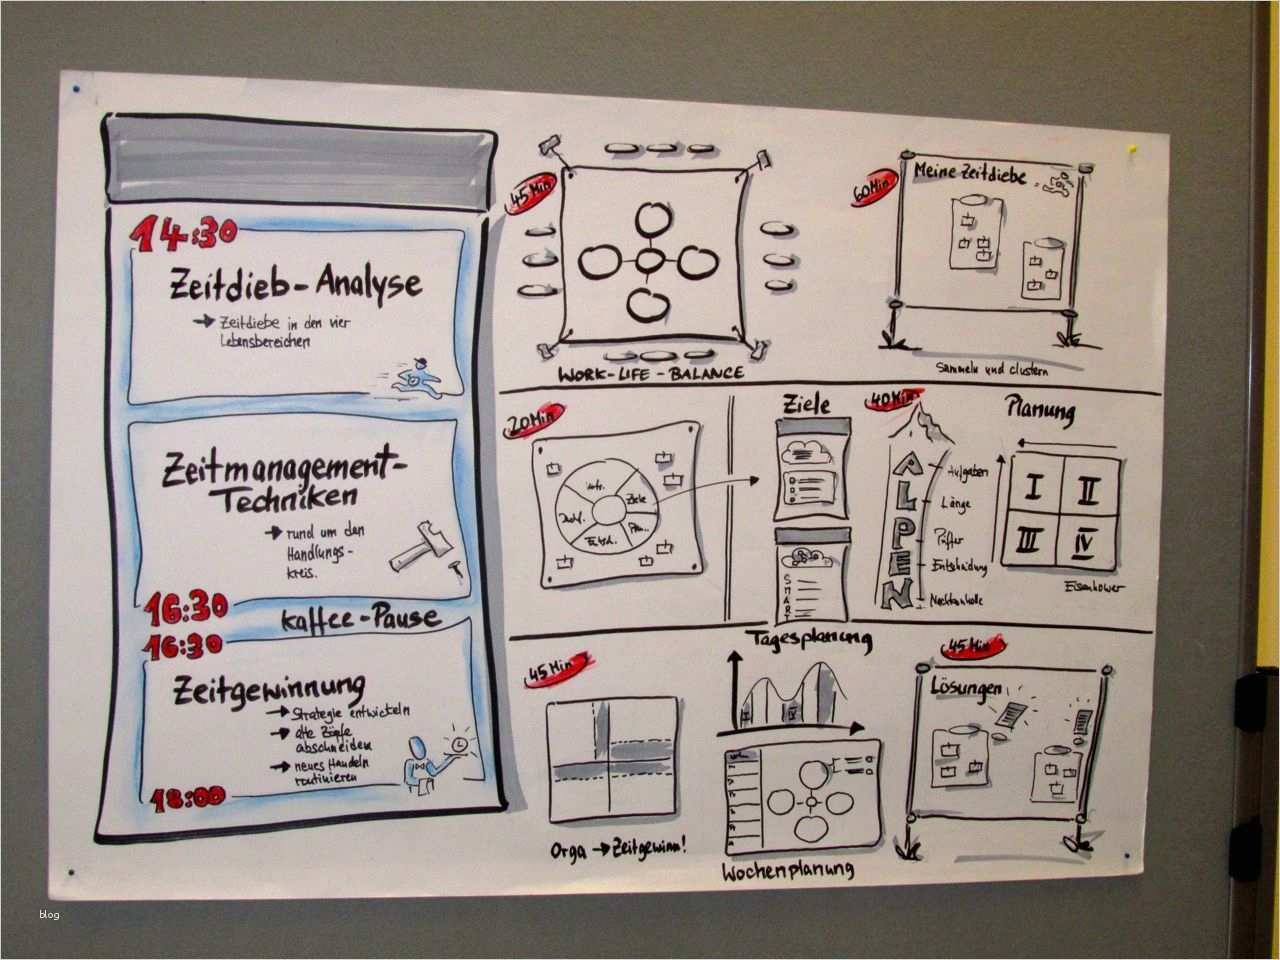 14:30
Zeitdieb-Analyse
→ Zeitdiebe in den vier
Lebensbereichen
Zeitmanagement-
Techniken
→ rund um den
Handlungs-
kreis.
16:30
Kaffee-Pause
16:30
Zeitgewinnung
→ Strategie entwickeln
→ alte Zöpfe
abschneiden
→ neues Handeln
routinieren
18:00
45 Min
WORK-LIFE-BALANCE
60 Min
Meine Zeitdiebe
Sammeln und clustern
20 Min
Ziele
Ziele
SMART
40 Min
ALPEN
Aufgaben
Länge
Puffer
Entscheidung
Nachkontrolle
Planung
I II
III IV
Eisenhower
45 Min
Orga → Zeitgewinn!
Tagesplanung
Wochenplanung
45 Min
Lösungen
blog